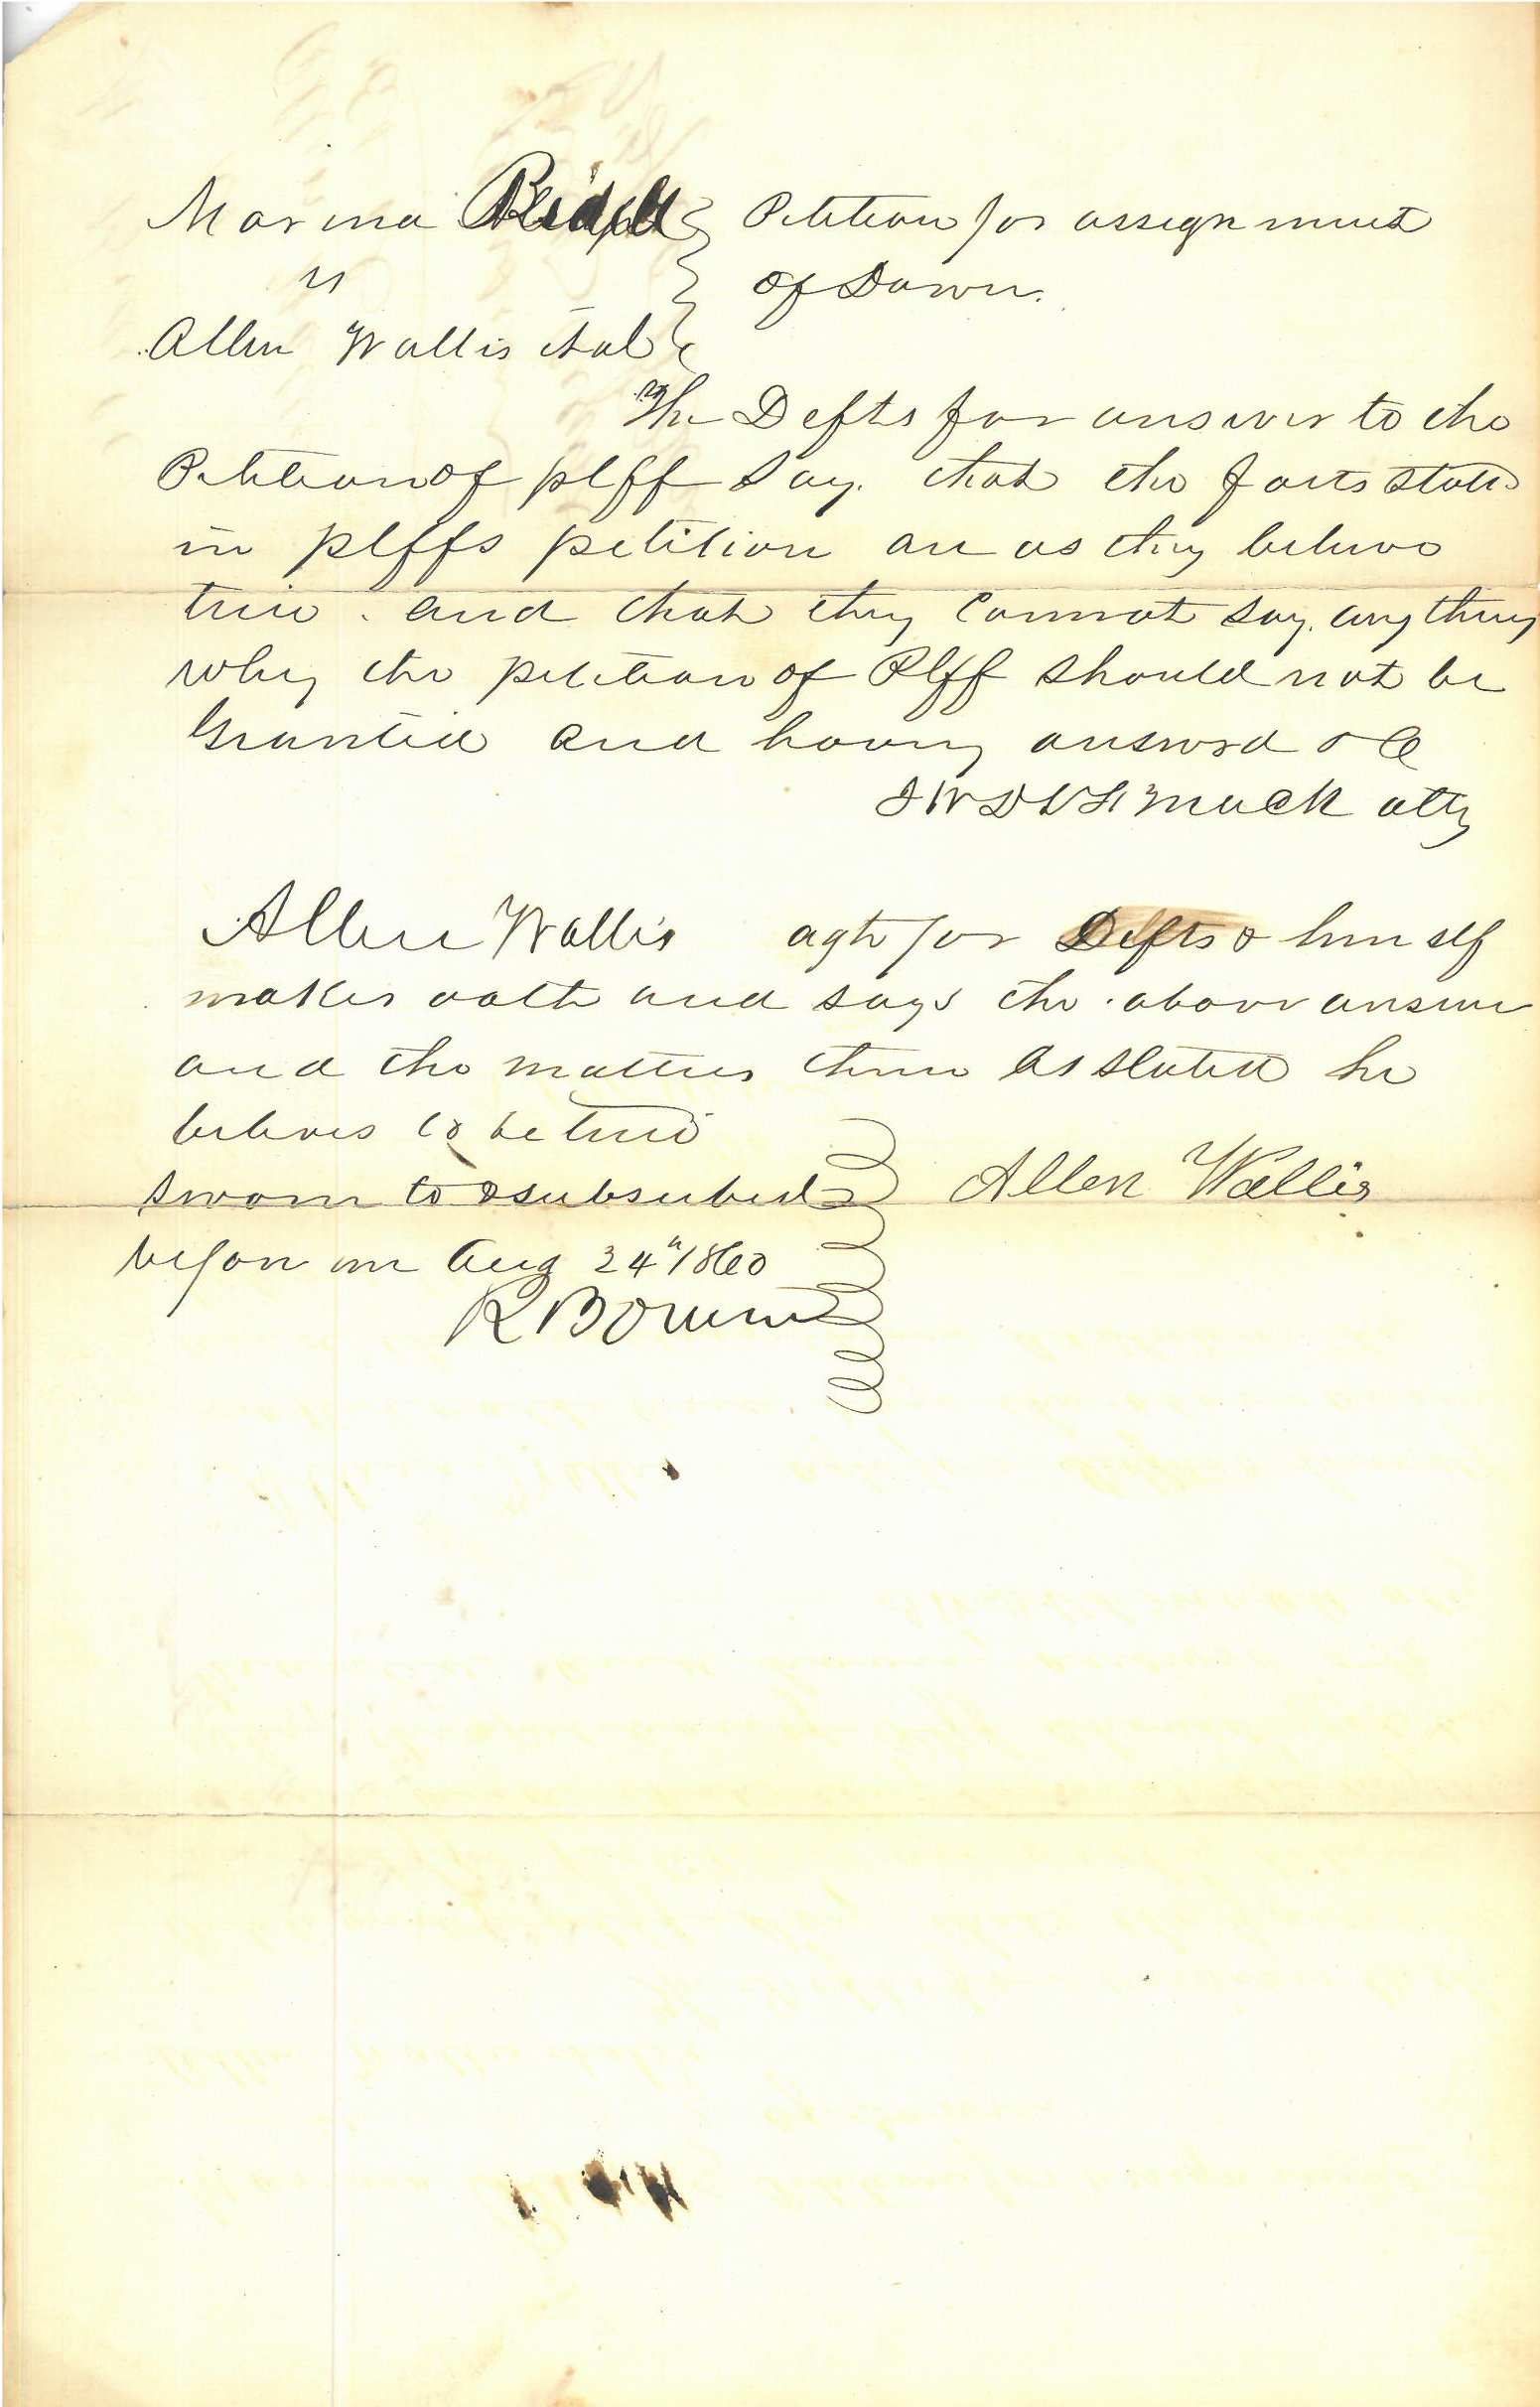 Marina
vs
Allen Wallis et al
Petition for assignment
of Dower.
The Defts for answer to the
Petition of plff say. that the facts stated
in plffs petition are as they believe
true. and that they cannot say anything
why the petition of Plff should not be
Granted and having answerd &C
atty
Allen Wallis agt for Defts & himself
makes oath and says the above answer
and the matters therein as stated he
believes to be true
Sworn to & subscribed
before me Aug 24th 1860
Allen Wallis